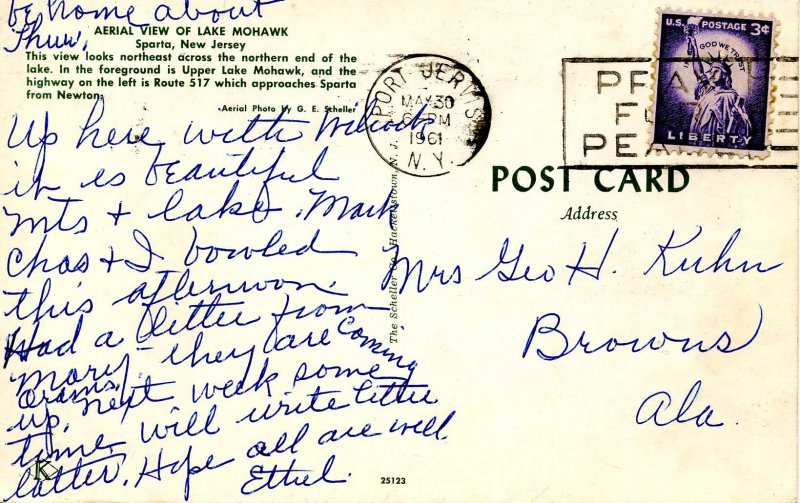 be home about
Thur,
AERIAL VIEW OF LAKE MOHAWK
Sparta, New Jersey
This view looks northeast across the northern end of the
lake. In the foreground is Upper Lake Mohawk, and the
highway on the left is Route 517 which approaches Sparta
from Newton.
-Aerial Photo by G. E. Scheller
Up here with
it is beautiful
mts + lake. Mark
Chas + I bowled
this afternoon.
Had a letter from
Mary - they are coming
up, next week some
time will write letter
latter. Hope all are well.
Ethel.
K
25123
The Scheller Co., Hackettstown, N. J.
PORT JERVIS
MAY 30
6 PM
1961
N. Y.
PRA
F
PEA
U.S. POSTAGE 3¢
IN GOD WE TRUST
LIBERTY
POST CARD
Address
Mrs Geo H. Kuhn
Browns
Ala.